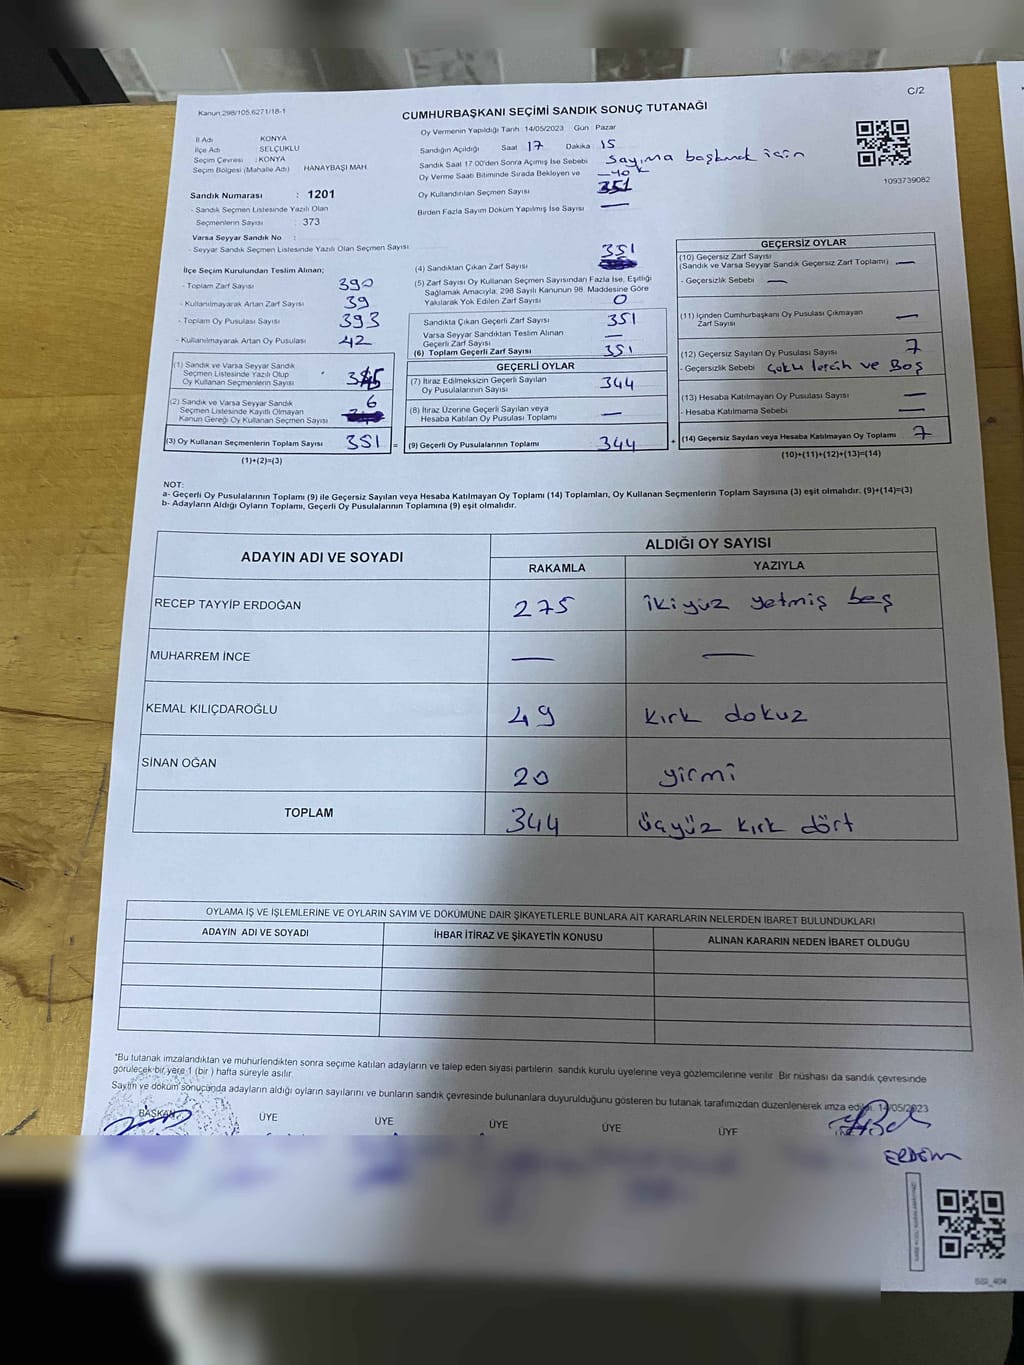 C/2
Kanun 298/105,6271/18-1
CUMHURBAŞKANI SEÇİMİ SANDIK SONUÇ TUTANAĞI
İl Adı KONYA
İlçe Adı SELÇUKLU
Seçim Çevresi : KONYA
Seçim Bölgesi (Mahalle Adı) HANAYBAŞI MAH.
Oy Vermenin Yapıldığı Tarih 14/05/2023 Gün Pazar
Sandığın Açıldığı Saat 17 Dakika 15
Sandık Saat 17:00'den Sonra Açılmış İse Sebebi Sayıma başlamak için
Oy Verme Saati Bitiminde Sırada Bekleyen ve
Oy Kullandırılan Seçmen Sayısı
Birden Fazla Sayım Döküm Yapılmış İse Sayısı —
1093739082
Sandık Numarası : 1201
- Sandık Seçmen Listesinde Yazılı Olan
Seçmenlerin Sayısı : 373
Varsa Seyyar Sandık No :
- Seyyar Sandık Seçmen Listesinde Yazılı Olan Seçmen Sayısı
İlçe Seçim Kurulundan Teslim Alınan;
- Toplam Zarf Sayısı 390
- Kullanılmayarak Artan Zarf Sayısı 39
- Toplam Oy Pusulası Sayısı 393
- Kullanılmayarak Artan Oy Pusulası 42
(1) Sandık ve Varsa Seyyar Sandık
Seçmen Listesinde Yazılı Olup
Oy Kullanan Seçmenlerin Sayısı
(2) Sandık ve Varsa Seyyar Sandık
Seçmen Listesinde Kayıtlı Olmayan
Kanun Gereği Oy Kullanan Seçmen Sayısı 6
(3) Oy Kullanan Seçmenlerin Toplam Sayısı 351 =
(1)+(2)=(3)
(4) Sandıktan Çıkan Zarf Sayısı 351
(5) Zarf Sayısı Oy Kullanan Seçmen Sayısından Fazla İse, Eşitliği
Sağlamak Amacıyla, 298 Sayılı Kanunun 98. Maddesine Göre
Yakılarak Yok Edilen Zarf Sayısı 0
Sandıkta Çıkan Geçerli Zarf Sayısı 351
Varsa Seyyar Sandıktan Teslim Alınan
Geçerli Zarf Sayısı —
(6) Toplam Geçerli Zarf Sayısı 351
GEÇERLİ OYLAR
(7) İtiraz Edilmeksizin Geçerli Sayılan
Oy Pusulalarının Sayısı 344
(8) İtiraz Üzerine Geçerli Sayılan veya
Hesaba Katılan Oy Pusulası Toplamı —
(9) Geçerli Oy Pusulalarının Toplamı 344 +
GEÇERSİZ OYLAR
(10) Geçersiz Zarf Sayısı
(Sandık ve Varsa Seyyar Sandık Geçersiz Zarf Toplamı) —
- Geçersizlik Sebebi —
(11) İçinden Cumhurbaşkanı Oy Pusulası Çıkmayan
Zarf Sayısı —
(12) Geçersiz Sayılan Oy Pusulası Sayısı 7
- Geçersizlik Sebebi Çoklu tercih ve Boş
(13) Hesaba Katılmayan Oy Pusulası Sayısı —
- Hesaba Katılmama Sebebi —
(14) Geçersiz Sayılan veya Hesaba Katılmayan Oy Toplamı 7
(10)+(11)+(12)+(13)=(14)
NOT:
a- Geçerli Oy Pusulalarının Toplamı (9) ile Geçersiz Sayılan veya Hesaba Katılmayan Oy Toplamı (14) Toplamları, Oy Kullanan Seçmenlerin Toplam Sayısına (3) eşit olmalıdır. (9)+(14)=(3)
b- Adayların Aldığı Oyların Toplamı, Geçerli Oy Pusulalarının Toplamına (9) eşit olmalıdır.
ADAYIN ADI VE SOYADI
ALDIĞI OY SAYISI
RAKAMLA YAZIYLA
RECEP TAYYİP ERDOĞAN 275 İkiyüz yetmiş beş
MUHARREM İNCE — —
KEMAL KILIÇDAROĞLU 49 Kırk dokuz
SİNAN OĞAN 20 yirmi
TOPLAM 344 üçyüz kırk dört
OYLAMA İŞ VE İŞLEMLERİNE VE OYLARIN SAYIM VE DÖKÜMÜNE DAİR ŞİKAYETLERLE BUNLARA AİT KARARLARIN NELERDEN İBARET BULUNDUKLARI
ADAYIN ADI VE SOYADI İHBAR İTİRAZ VE ŞİKAYETİN KONUSU ALINAN KARARIN NEDEN İBARET OLDUĞU
*Bu tutanak imzalandıktan ve mühürlendikten sonra seçime katılan adayların ve talep eden siyasi partilerin sandık kurulu üyelerine veya gözlemcilerine verilir. Bir nüshası da sandık çevresinde
görülecek bir yere 1 (bir ) hafta süreyle asılır.
Sayım ve döküm sonucunda adayların aldığı oyların sayılarını ve bunların sandık çevresinde bulunanlara duyurulduğunu gösteren bu tutanak tarafımızdan düzenlenerek imza edildi. 14/05/2023
BAŞKAN ÜYE ÜYE ÜYE ÜYE ÜYE
ERDEM